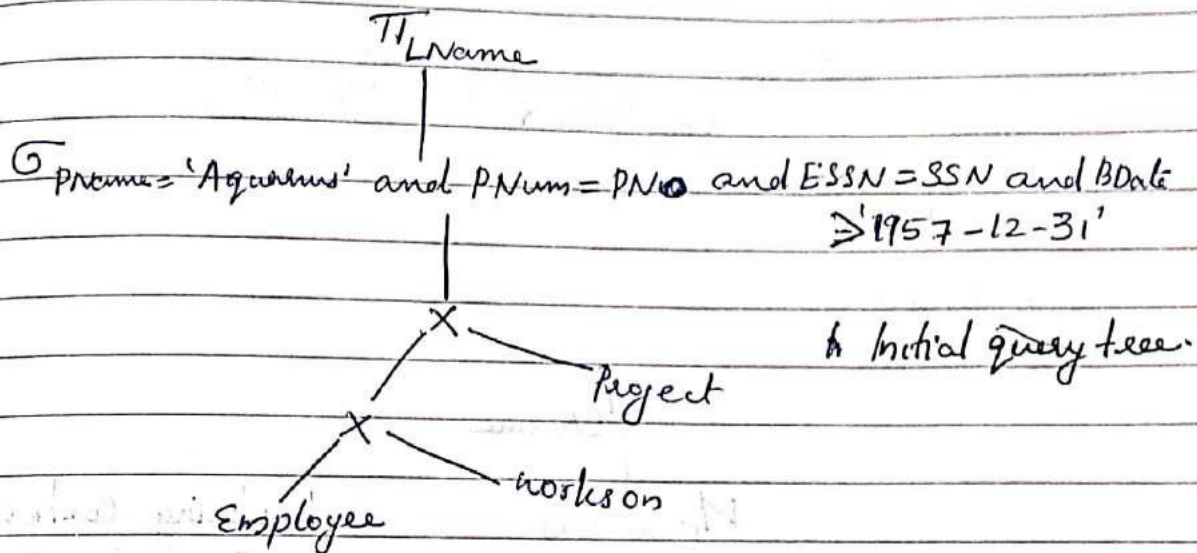 π LName
σ PName = 'Aquarius' and PNum = PNo and ESSN = SSN and BDate
≥ '1957-12-31'
X
Initial query tree.
Project
X
workson
Employee